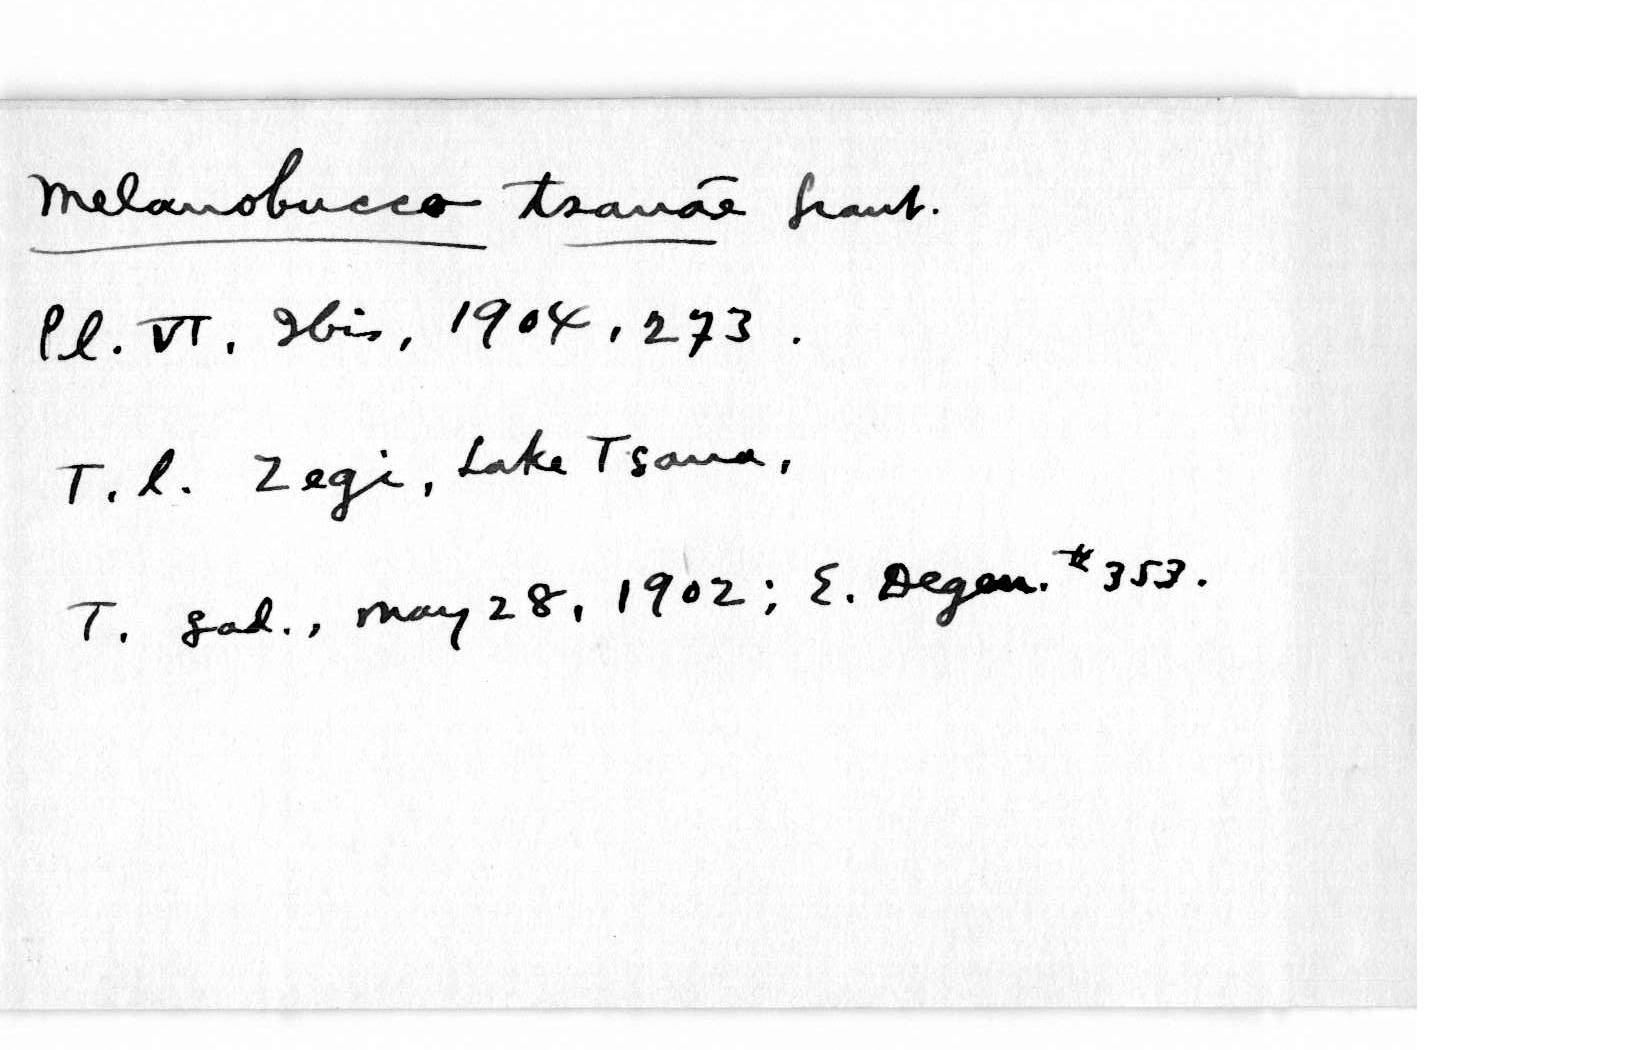 Melanobucco tsanae Grant.
Pl. VI, Ibis, 1904, 273.
T. l. Zegi, Lake Tsana,
T. gad., May 28, 1902; E. Degen. #353.